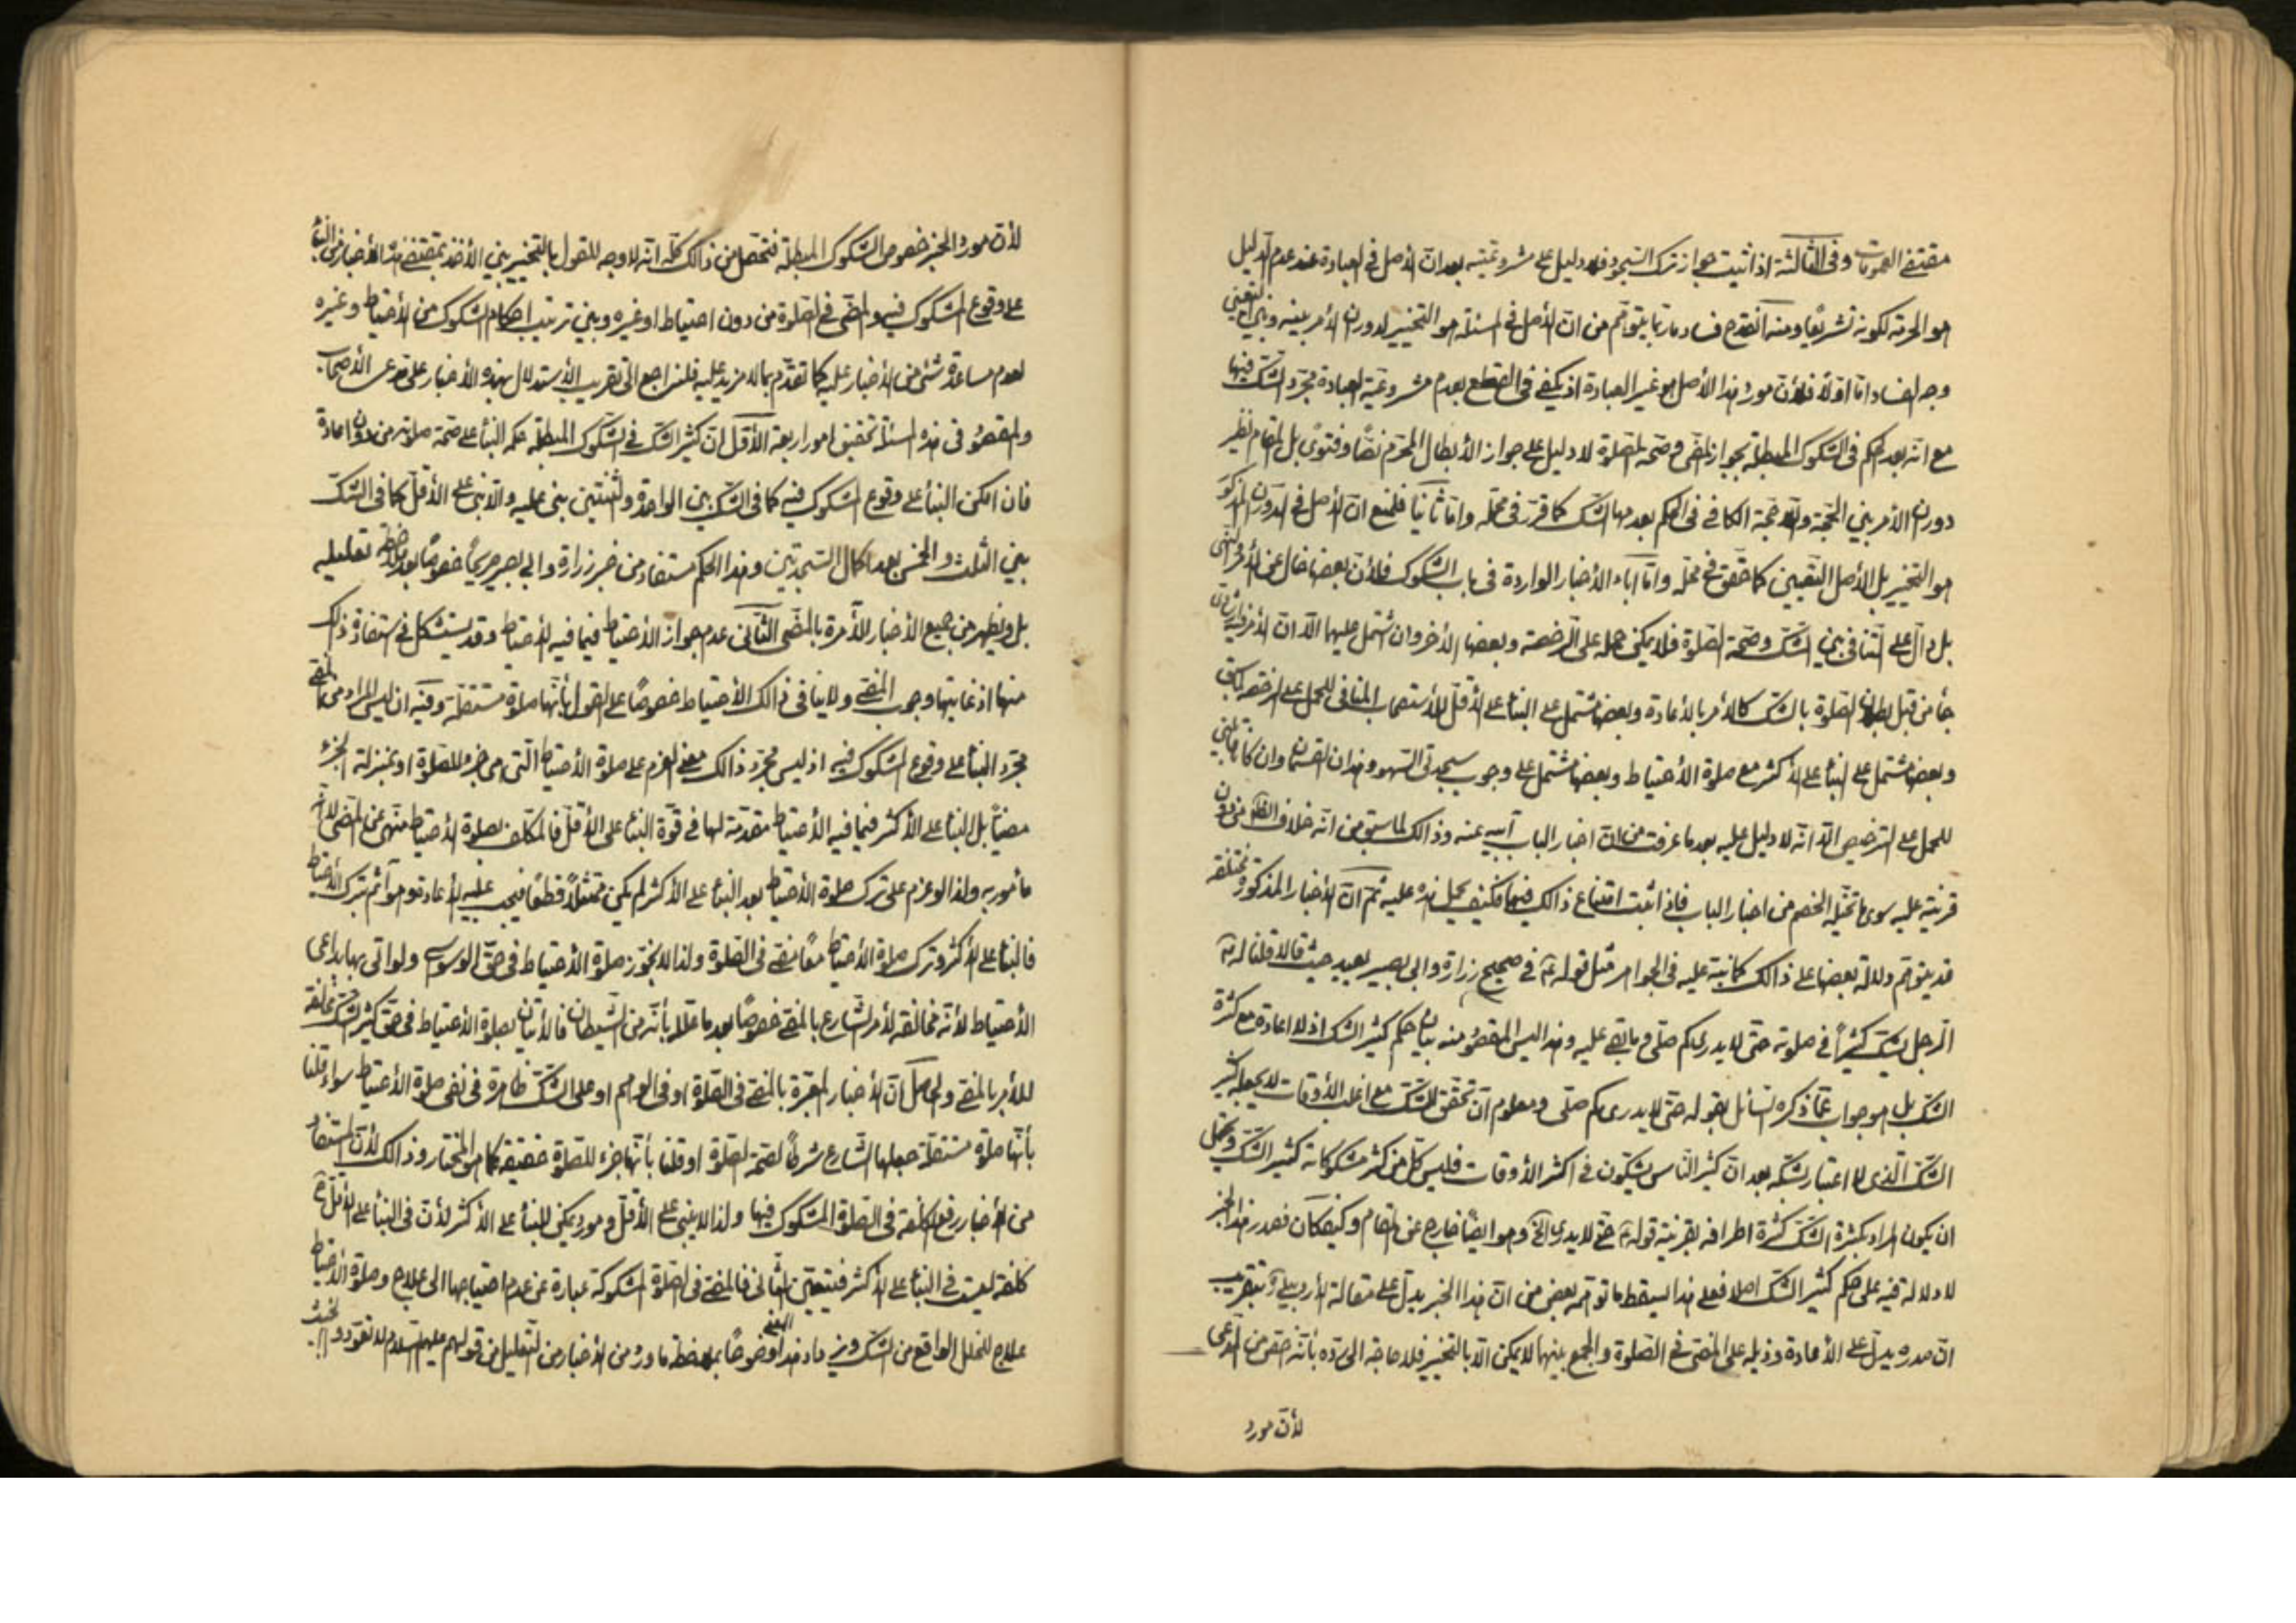 مقتضى العمومات وفى الثالثة اذا ثبت جواز ترك السجود فلا دليل على مشروعيته بعد ان الأصل فى العبادة عند عدم الدليل
هو الحرمة لكونه تشريعًا ومنه انقدح فساد ما ربما يتوهم من ان الأصل فى المسئلة هو التخيير لدوران الأمر بينه وبين التعيين
وجه الفساد اما اولاً فلأن مورد هذا الأصل هو غير العبادة اذ يكفى فى القطع بعدم مشروعية العبادة مجرد الشك فيها
مع انه بعد الحكم فى الشكوك المبطلة بجواز المضى وصحة الصلوة لا دليل على جواز الأبطال المحرم نصًا وفتوى بل المقام نظير
دوران الأمر بين الحجة واللاحجة الكافى فى الحكم بعدمها الشك كما قرر فى محله واما ثانيًا فلمنع ان الأصل فى الدوران المذكور
هو التخيير بل الأصل التعيين كما حقق فى محله واما اباء الأخبار الواردة فى باب الشكوك فلأن بعضها خال عن الأمر والنهى
بل دال على التنافى بين الشك وصحة الصلوة فلا يمكن حمله على الرخصة وبعضها الأخر وان اشتمل عليهما الا ان الأمر فيه ارشادى
جاء من قبل بطلان الصلوة بالشك كالأمر بالأعادة وبعضها مشتمل على البناء على الأقل للأستصحاب المنافى للحمل على الرخصة
وبعضها مشتمل على البناء على الأكثر مع صلوة الأحتياط وبعضها مشتمل على وجوب سجدتى السهو وهذان القسمان وان كانا قابلين
للحمل على الترخيص الا انه لا دليل عليه بعد ما عرفت من ان اخبار الباب آبية عنه وذالك لما سبق من انه خلاف الظاهر من دون
قرينة عليه سوى ما تخيله الخصم من اخبار الباب فاذا اثبت امتناع ذالك فيها فكيف يحمل هذه عليه ثم ان الأخبار المذكورة مختلفة
قد يتوهم دلالة بعضها على ذالك كما نبه عليه فى الجواهر مثل قوله ع فى صحيح زرارة وابى بصير بعيد حيث قالا قلنا له
الرجل يشك كثيرًا فى صلوته حتى لا يدرى كم صلى وما بقى عليه وهذا ليس المقصود منه بيان حكم كثير الشك اذ لا اعادة مع كثرة
الشك بل هو جواب عما ذكره السائل بقوله حتى لا يدرى كم صلى ومعلوم ان تحقق الشك مع اغلب الأوقات لا يجعله كثير
الشك الذى لا اعتبار بشكه بعد ان كثير الناس يشكون فى اكثر الأوقات فليس كل من كثر مشكوكاته كثير الشك ويحتمل
ان يكون المراد بكثرة الشك كثرة اطرافه بقرينة قوله ع حتى لا يدرى الخ وهو ايضًا خارج عن المقام وكيف كان فصدر هذا الخبر
لا دلالة فيه على حكم كثير الشك اصلا فعلى هذا يسقط ما توهمه بعض من ان هذا الخبر يدل على مقالة الأردبيلى بتقريب
ان صدره يدل على الأعادة وذيله على المضى فى الصلوة والجمع بينهما لا يمكن الا بالتخيير فلا حاجة الى رده بأنه اخص من المدعى
لأن مورد
لأن مورد الخبر خصوص الشكوك المبطلة فتحصل من ذالك كله انه لا وجه للقول بالتخيير بين الأخذ بمقتضى هذه الأخبار من البناء
على وقوع المشكوك فيه والمضى فى الصلوة من دون احتياط او غيره وبين ترتيب احكام الشكوك من الأحتياط وغيره
لعدم مساعدة شئ من الأخبار عليه كما تقدم بما لا مزيد عليه فلنراجع الى تقريب الأستدلال بهذه الأخبار على مدعى الأصحاب
والمقصود فى هذه المسئلة تحقيق امور اربعة الأول ان كثير الشك فى الشكوك المبطلة حكمه البناء على صحة صلوته من دون اعادة
فان امكن البناء على وقوع المشكوك فيه كما فى الشك بين الواحدة والثنتين بنى عليه والا بنى على الأقل كما فى الشك
بين الثلث والخمس بعد اكمال السجدتين وهذا الحكم مستفاد من خبر زرارة وابى بصير صريحًا خصوصًا بعد ملاحظة تعليله
بل ويظهر من جميع الأخبار الأمرة بالمضى الثانى عدم جواز الأحتياط فيما فيه الأحتياط وقد يستشكل فى استفادة ذالك
منها اذ غايتها وجوب المضى ولا ينافى ذالك الأحتياط خصوصًا على القول بأنها صلوة مستقلة وفيه ان ليس المراد من المضى
مجرد البناء على وقوع المشكوك فيه اذ ليس مجرد ذالك مع العزم على صلوة الأحتياط التى هى جزء للصلوة او بمنزلة الجزء
مضيًا بل البناء على الأكثر فيما فيه الأحتياط مقدمة لها فى قوة البناء على الأقل فالمكلف بصلوة الأحتياط منهى عن المضى لا
مأمور به ولذا لو عزم على ترك صلوة الأحتياط بعد البناء على الأكثر لم يكن ممتثلاً قطعًا فيجب عليه الأعادة وهو آثم بترك الأحتياط
فالبناء على الأكثر وترك صلوة الأحتياط معًا مضى فى الصلوة ولذا لا يجوز صلوة الأحتياط فى حق الوسواس ولو اتى بها بداعى
الأحتياط لأنه مخالفة لأمر الشارع بالمضى خصوصًا بعد ما علل بأنه من الشيطان فالأتيان بصلوة الأحتياط فى حق كثير الشك مخالفة
للأمر بالمضى والحاصل ان الأخبار المعبرة بالمضى فى الصلوة او فى الوهم او على الشك ظاهرة فى نفى صلوة الأحتياط سواء قلنا
بأنها صلوة مستقلة جعلها الشارع شرطًا لصحة الصلوة او قلنا بأنها جزء للصلوة حقيقة كما هو المختار وذالك لأن المستفاد
من الأخبار رفع الكلفة فى الصلوة المشكوك فيها ولذا لا يبنى على الأقل فى مورد يمكن البناء على الأكثر لأن فى البناء على الأقل
كلفة ليست فى البناء على الأكثر فيتعين الثانى فالمضى فى الصلوة المشكوكة عبارة عن عدم احتياجها الى علاج وصلوة الأحتياط
علاج للخلل الواقع من الشك ويزداد هذا المعنى وضوحًا بملاحظة ما ورد من الأخبار من التعليل من قولهم عليهم السلام لا تعودوا الخبيث